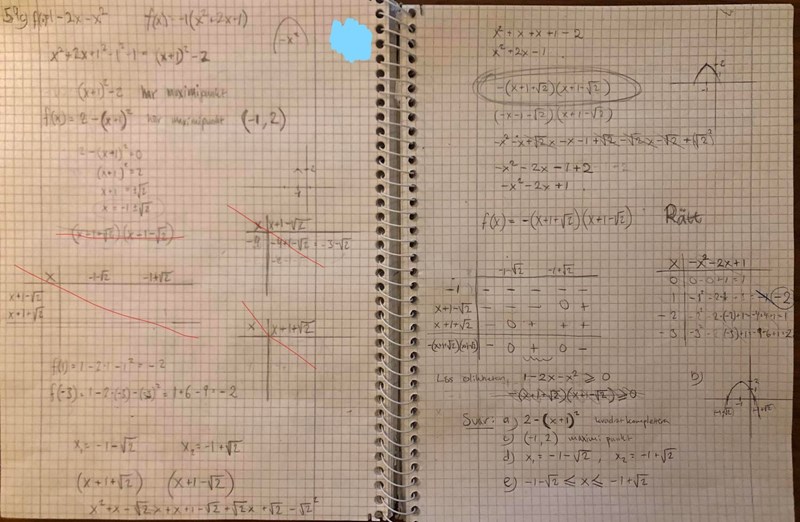 f(x)=1-2x-x²
f(x)=-1(x²+2x-1)
-x²
x²+2x+1²-1²-1= (x+1)²-2
(x+1)²-2 har maximipunkt
f(x)= 2-(x+1)² har maximipunkt (-1,2)
2-(x+1)²=0
(x+1)²=2
x+1=±√2
x=-1±√2
(x+1+√2)(x+1-√2)
x x+1-√2
-4 -4+1-√2 = -3-√2
x -1-√2 -1+√2
x+1-√2
x+1+√2
x x+1+√2
f(1)=1-2·1-1²=-2
f(-3)=1-2·(-3)-(-3)²=1+6-9=-2
x₁=-1-√2 x₂=-1+√2
(x+1+√2) (x+1-√2)
x²+x-√2x+x+1-√2+√2x+√2-√2²
x²+x+x+1-2
x²+2x-1
-(x+1+√2)(x+1-√2)
(-x-1-√2)(x+1-√2)
-x²-x+√2x-x-1+√2-√2x-√2+(√2)²
-x²-2x-1+2
-x²-2x+1
f(x)=-(x+1+√2)(x+1-√2) Rätt
-1-√2 -1+√2
-1 - - - - -
x+1-√2 - - - 0 +
x+1+√2 - 0 + + +
-(x+1+√2)(x+1-√2) - 0 + 0 -
x -x²-2x+1
0 0-0+1=1
Lös olikheten, 1-2x-x²≥0
(x+1+√2)(x+1-√2)≥0
b)
-1-√2 -1+√2
Svar: a) 2-(x+1)² kvadratkomplettera
c) (-1,2) maximipunkt
d) x₁=-1-√2, x₂=-1+√2
e) -1-√2 ≤ x ≤ -1+√2